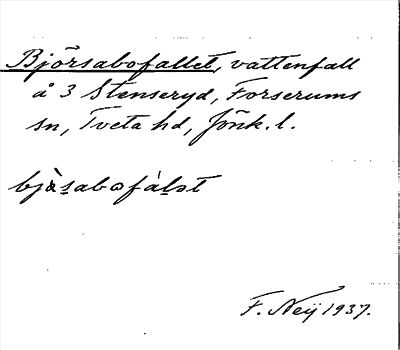 Björsabofallet, vattenfall
å 3 Stenseryd, Forserums
sn, Tveta hd, Jönk. l.
bjàsabofàlət
F. Neÿ 1937.